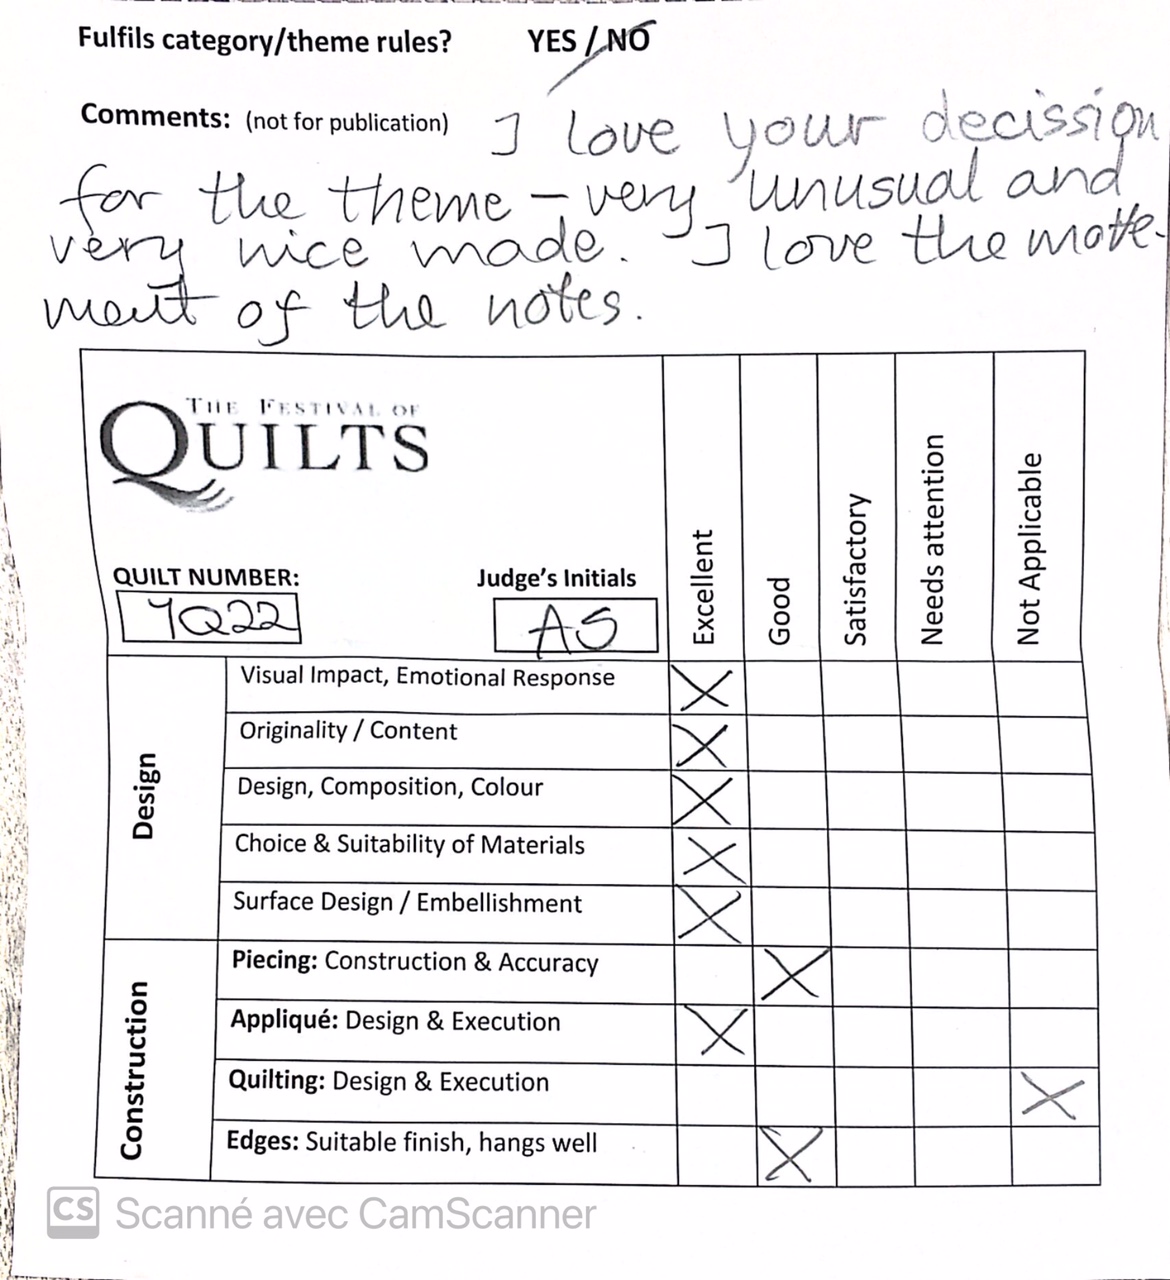 Fulfils category/theme rules? YES / NO
Comments: (not for publication) I love your decission
for the theme – very unusual and
very nice made. I love the move-
ment of the notes.
THE FESTIVAL OF
QUILTS
QUILT NUMBER: Judge's Initials
AS
Excellent
Good
Satisfactory
Needs attention
Not Applicable
Design
Visual Impact, Emotional Response
Originality / Content
Design, Composition, Colour
Choice & Suitability of Materials
Surface Design / Embellishment
Construction
Piecing: Construction & Accuracy
Appliqué: Design & Execution
Quilting: Design & Execution
Edges: Suitable finish, hangs well
CS Scanné avec CamScanner